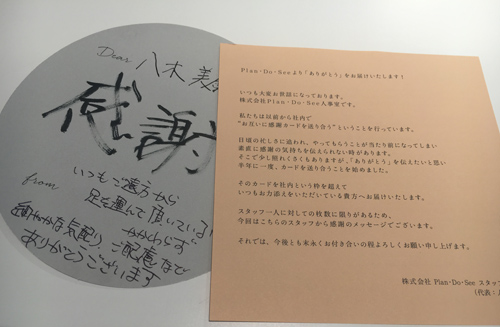 Dear 八木 美
感謝
from
いつもご遠方から
足を運んで頂いている
かかわらず
細やかな気配り、ご配慮など
ありがとうございます
Plan・Do・Seeより「ありがとう」をお届けいたします！
いつも大変お世話になっております。
株式会社Plan・Do・See人事室です。
私たちは以前から社内で
“お互いに感謝カードを送り合う”ということを行っています。
日頃の忙しさに追われ、やってもらうことが当たり前になってしまい
素直に感謝の気持ちを伝えられない時があります。
そこで少し照れくさくもありますが、「ありがとう」を伝えたいと思い
半年に一度、カードを送り合うことを始めました。
そのカードを社内という枠を超えて
いつもお力添えをいただいている貴方へお届けいたします。
スタッフ一人に対しての枚数に限りがあるため、
今回はこちらのスタッフから感謝のメッセージでございます。
それでは、今後とも末永くお付き合いの程よろしくお願い申し上げます。
株式会社 Plan・Do・See スタッ
(代表：人